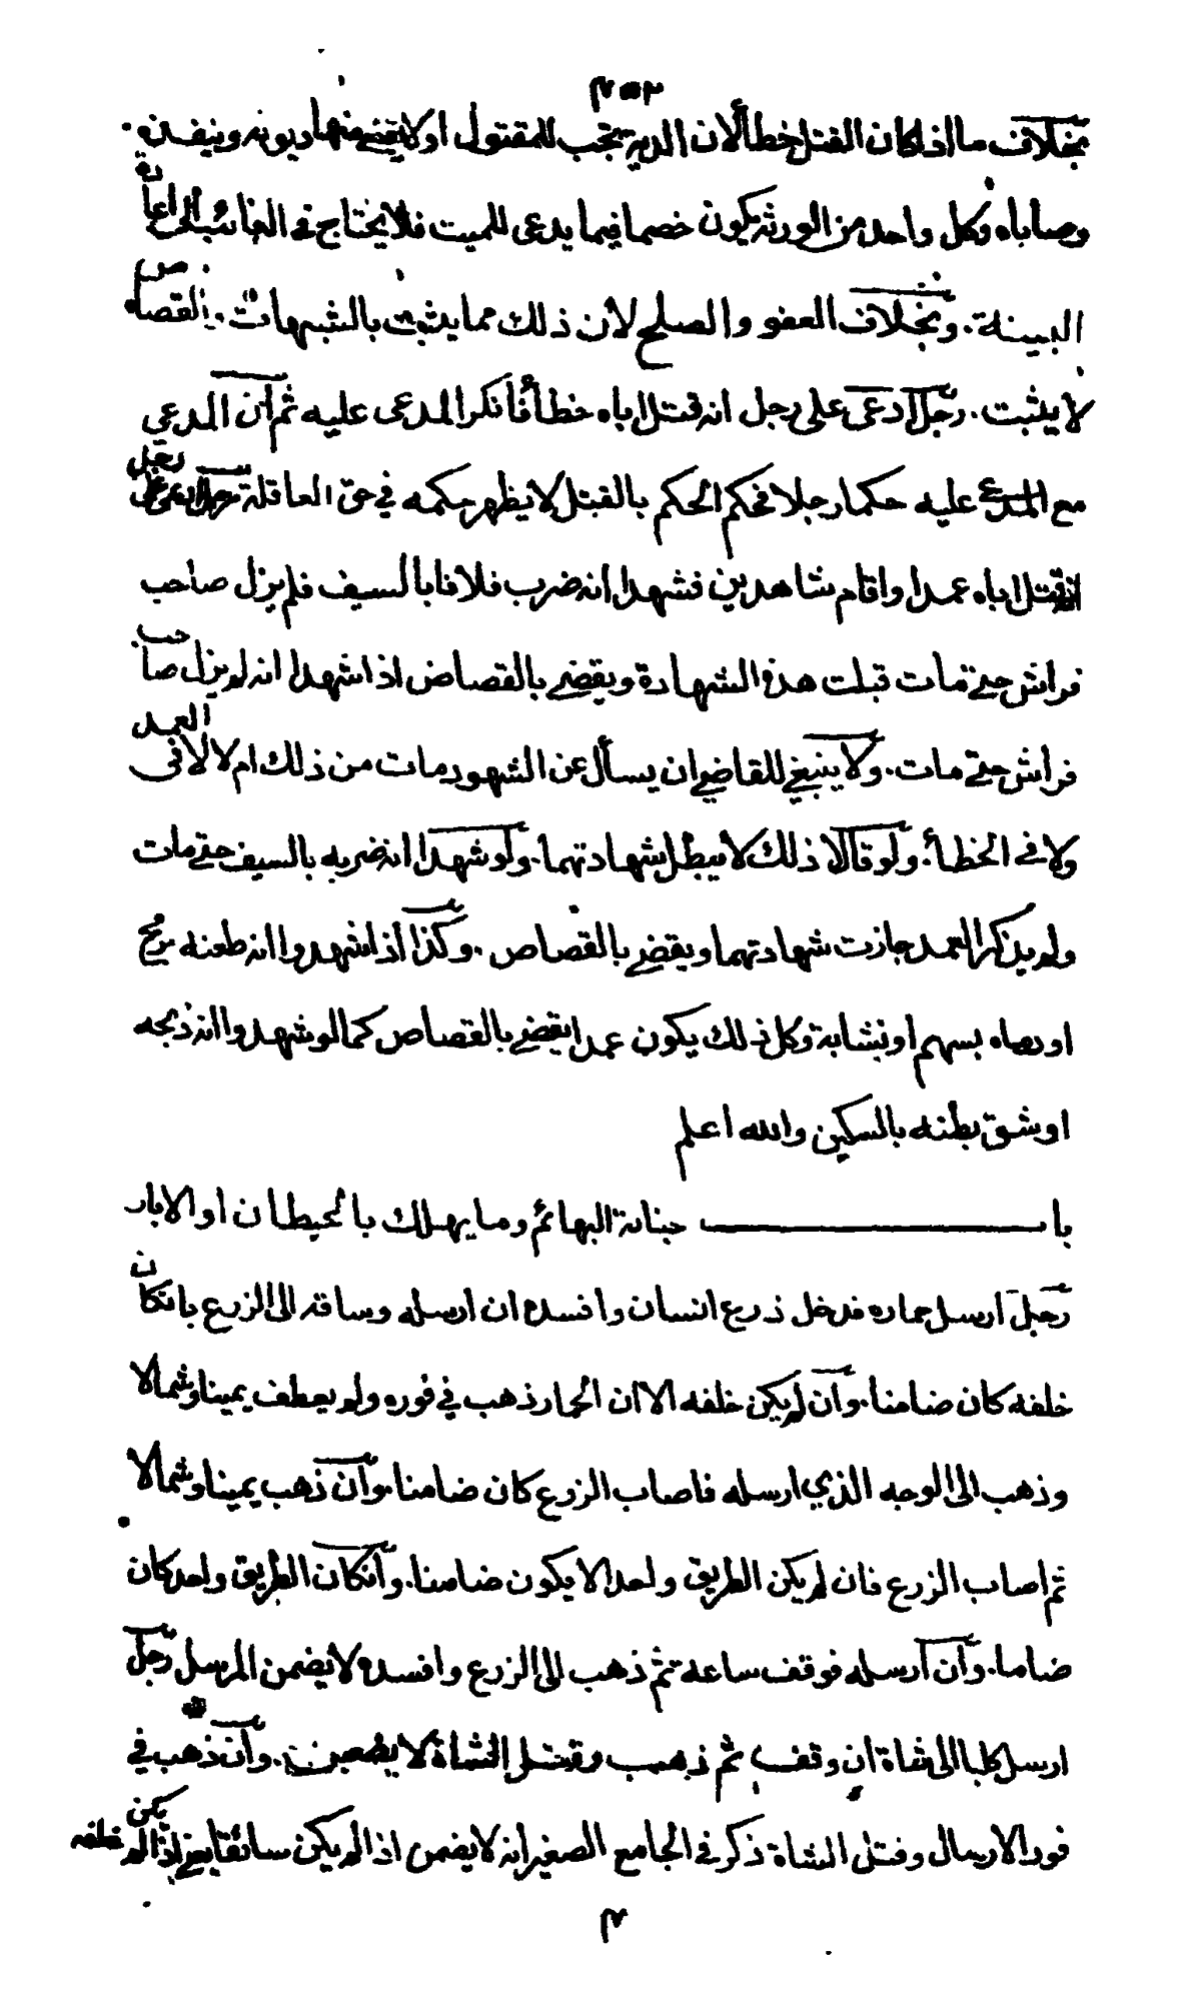 بخلاف ما اذا كان القتل خطأ لان الدية تجب للمقتول اولا يقضى منها ديونه وينفذ منه
وصاياه وكل واحد من الورثة يكون خصما فيما يدعى للميت فلا يحتاج في الغائب الى اعادة
البينة. وبخلاف العفو والصلح لأن ذلك مما يثبت بالشبهات. القصاص
لا يثبت. رجل ادعى على رجل انه قتل اباه خطأ فأنكر المدعى عليه ثم أن المدعي
مع المدعى عليه حكما رجلا فحكم الحكم بالقتل لا يظهر حكمه في حق العاقلة رجل ادعى على رجل
انه قتل اباه عمدا واقام شاهدين فشهدا انه ضرب فلانا بالسيف فلم يزل صاحب
فراش حتى مات قبلت هذه الشهادة ويقضى بالقصاص اذا شهدا انه لم يزل صاحب
فراش حتى مات. ولا ينبغي للقاضي ان يسأل عن الشهود مات من ذلك ام لا لا فى العمد
ولا في الخطأ. ولو قالا ذلك لا يبطل شهادتهما. ولو شهدا انه ضربه بالسيف حتى مات
ولم يذكر العمد جازت شهادتهما ويقضى بالقصاص. وكذا اذا شهدوا انه طعنه برمح
او رماه بسهم او نشابة وكل ذلك يكون عمدا يقضى بالقصاص كما لو شهدوا انه ذبحه
او شق بطنه بالسكين والله اعلم
باب جناية البهائم وما يهلك بالحيطان او الابار
رجل ارسل حماره فدخل زرع انسان وافسده ان ارسله وساقه الى الزرع بان كان
خلفه كان ضامنا. وان لم يكن خلفه الا ان الحمار ذهب في فوره ولم يعطف يمينا وشمالا
وذهب الى الوجه الذي ارسله فاصاب الزرع كان ضامنا. وان ذهب يمينا وشمالا
ثم اصاب الزرع فان لم يكن الطريق واحدا لا يكون ضامنا. وان كان الطريق واحد كان
ضامنا. وان ارسله فوقف ساعة ثم ذهب الى الزرع وافسده لا يضمن المرسل رجل
ارسل كلبا الى شاة ان وقف ثم ذهب وقتل الشاة لا يضمن. وان ذهب في
فور الارسال وقتل الشاة ذكر في الجامع الصغير انه لا يضمن اذا لم يكن سائقا يعني اذا لم يكن خلفه